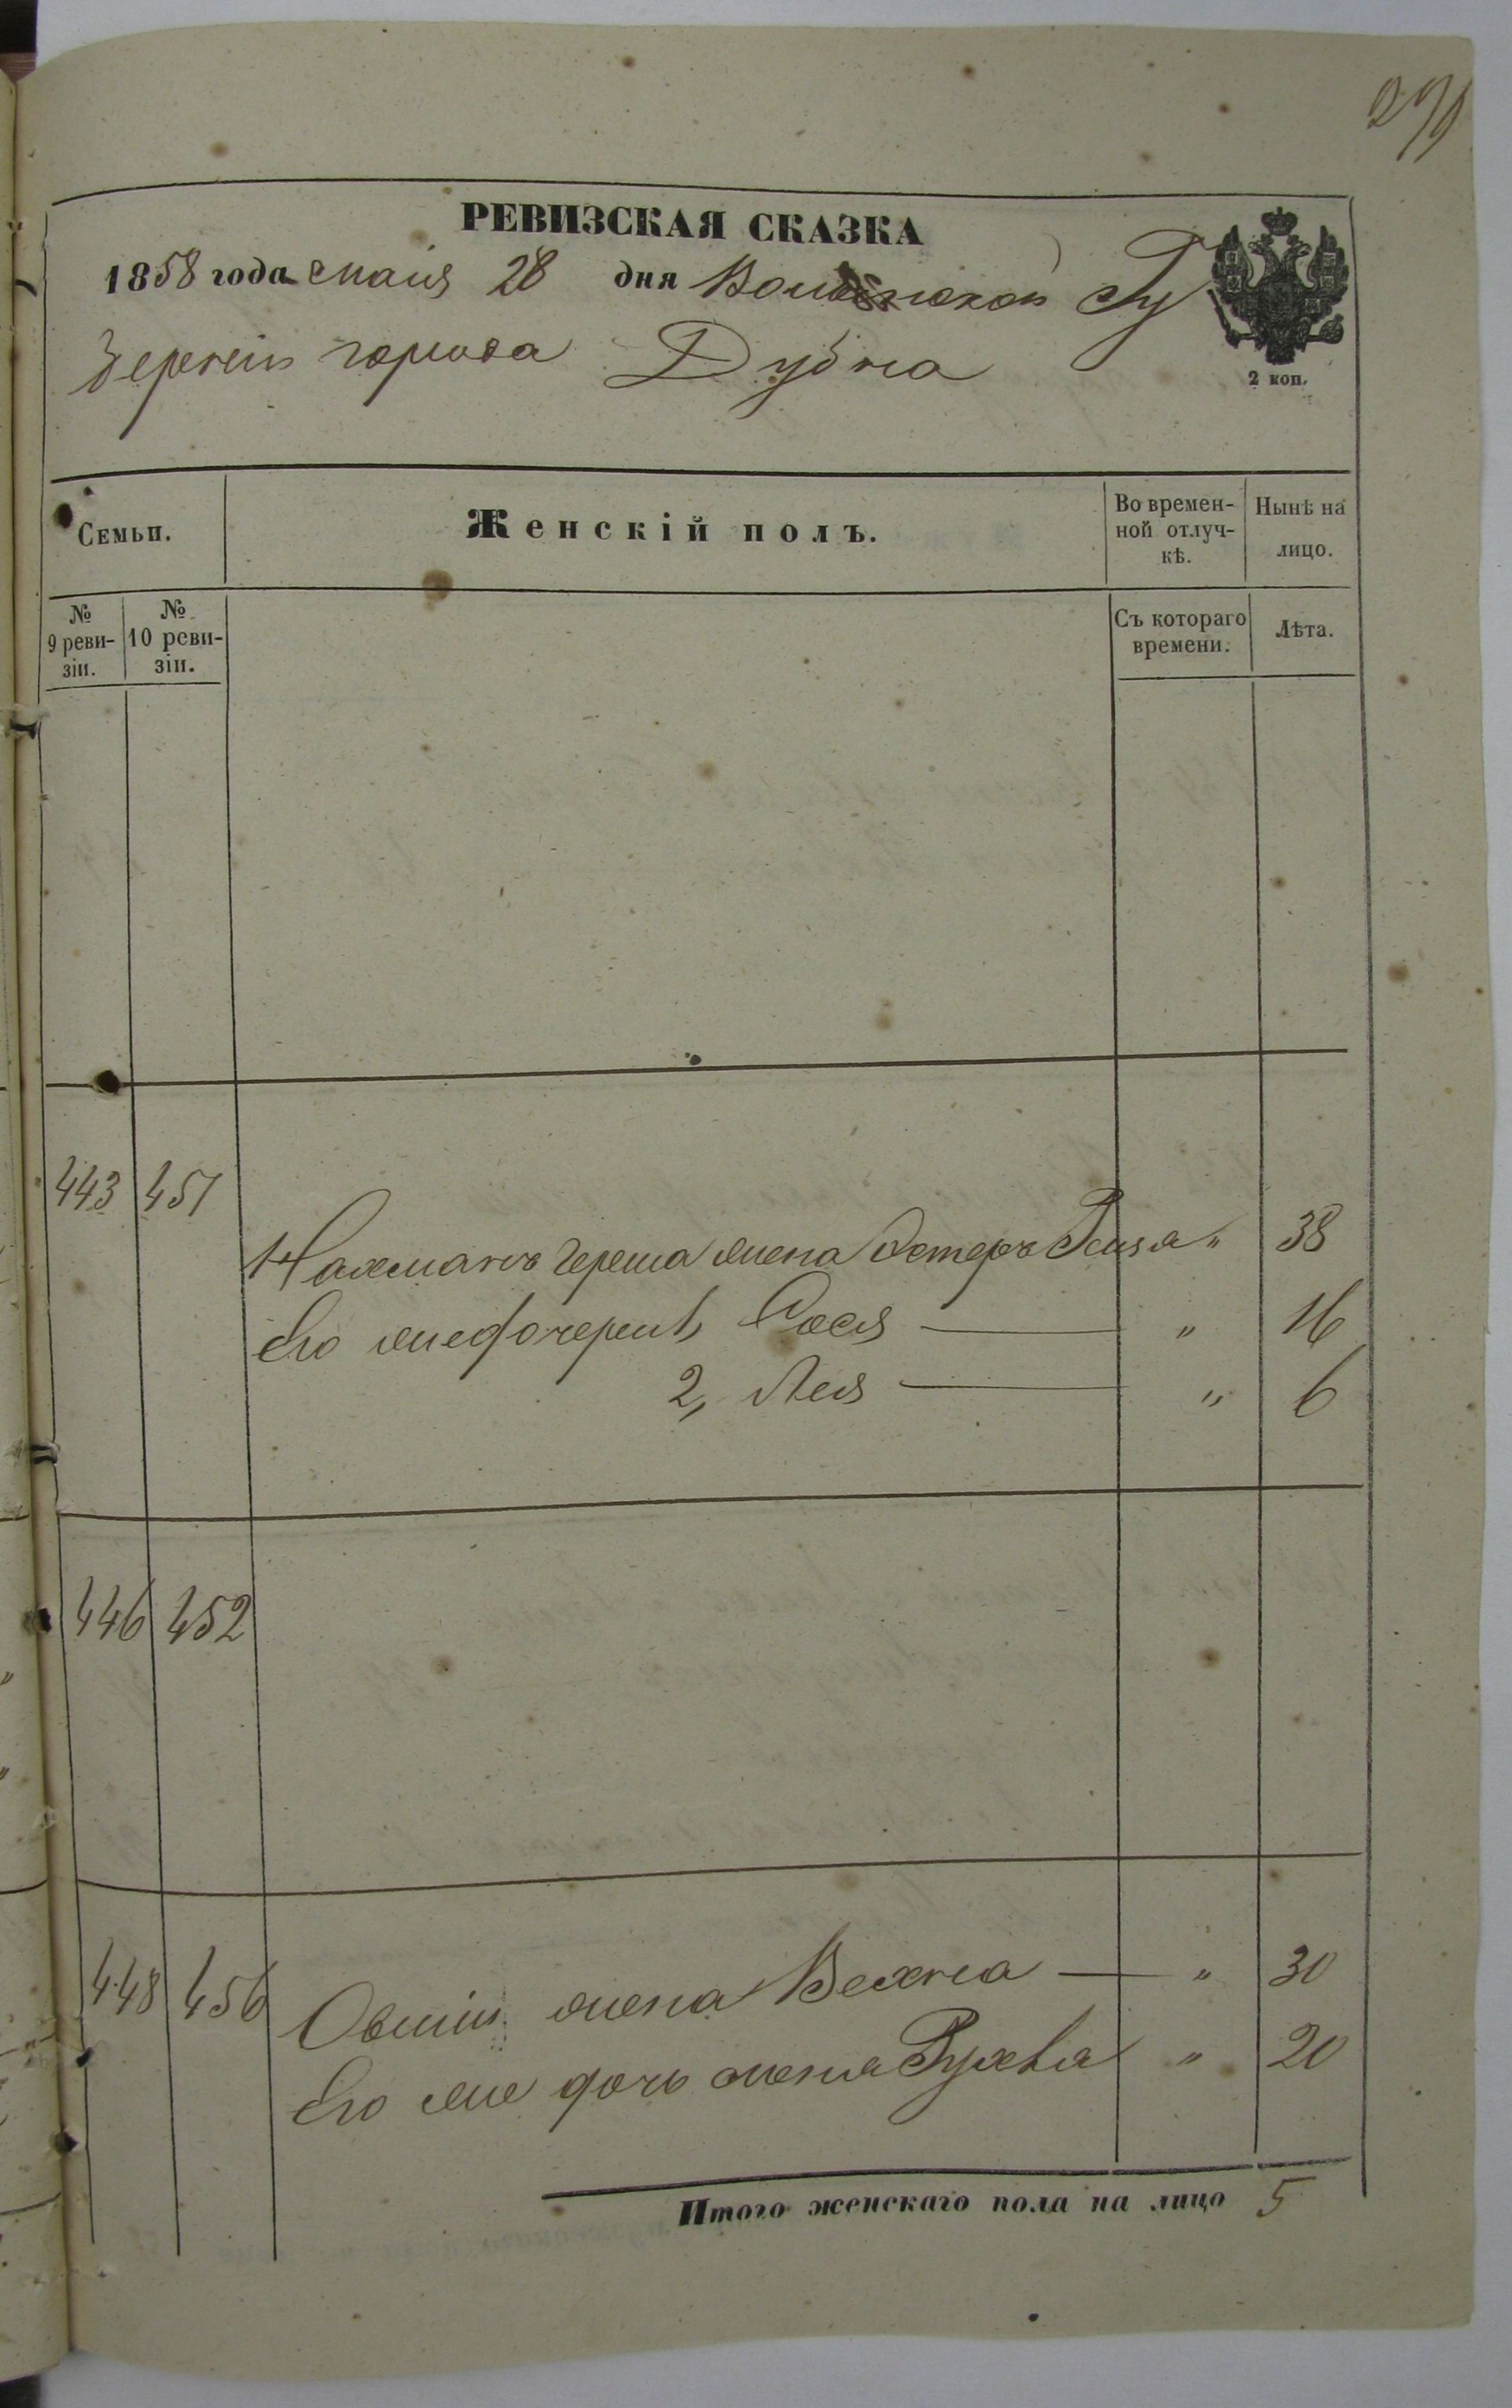 РЕВИЗСКАЯ СКАЗКА
1858 года маія 28 дня Волынской Гу
берніи города Дубна
2 коп.
Семьи.
Женскій полъ.
Во времен-
ной отлуч-
кѣ.
Нынѣ на
лицо.
№
9 реви-
зіи.
№
10 реви-
зіи.
Съ котораго
времени.
Лѣта.
443 451
Нахмана Герша жена Эстеръ Рейза " 38
Его же дочери 1, Сося — " 16
2, Лея — " 6
446 452
448 456
Овшіи жена Вехна — " 30
Его же дочь женя Рухля " 20
Итого женскаго пола на лицо 5